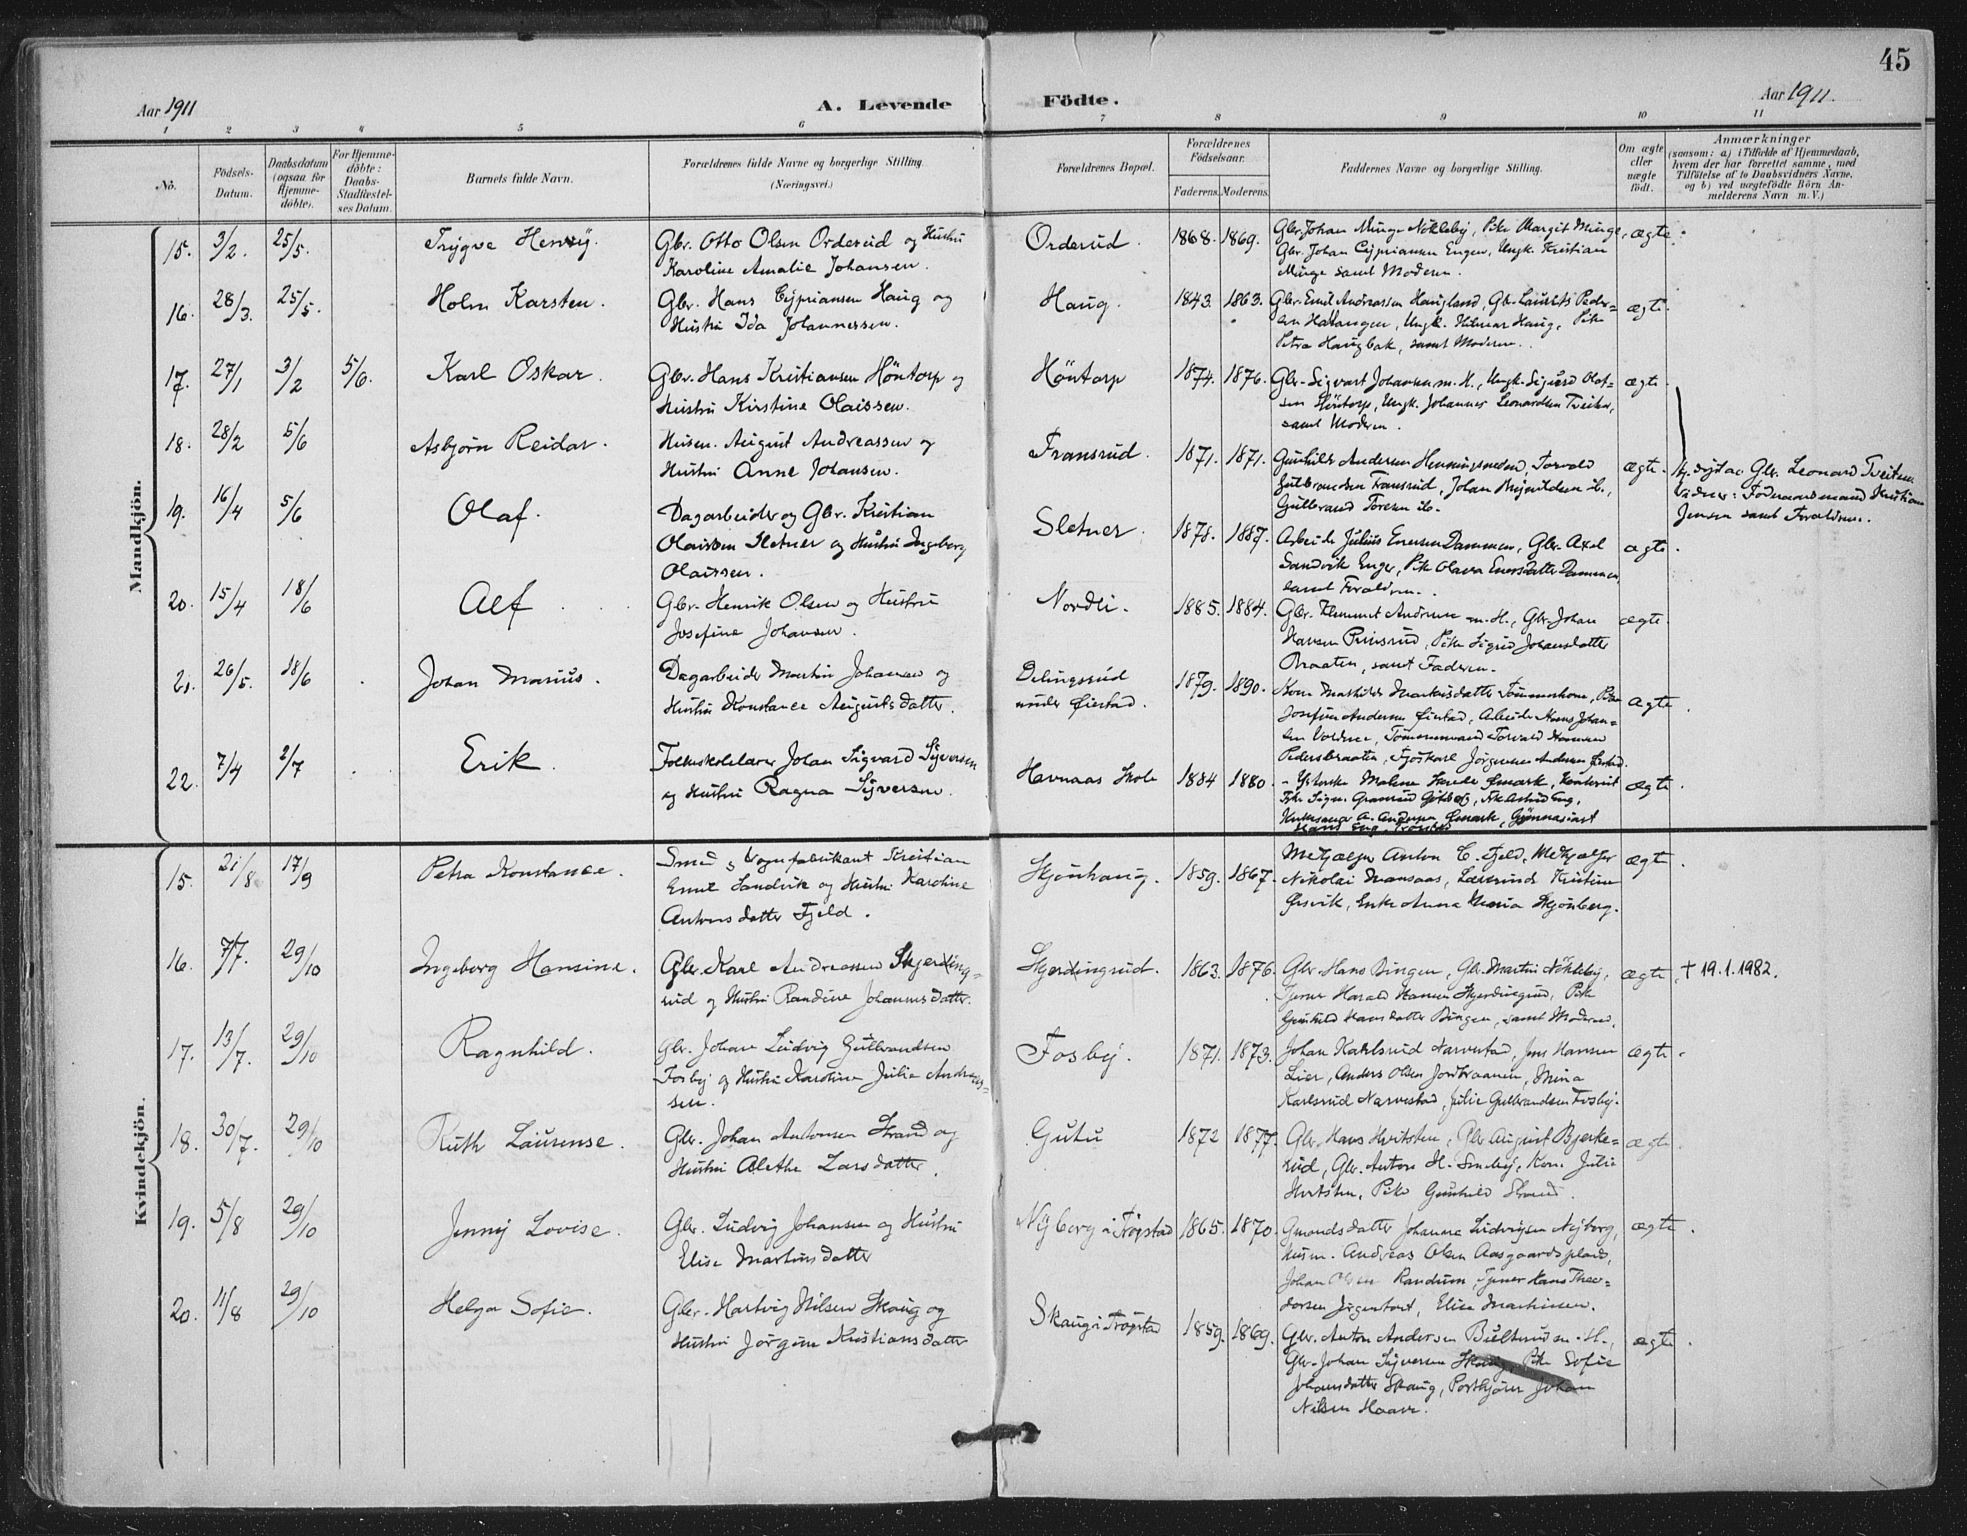 45
Aar 1911
A. Levende Födte.
Aar 1911.
1 2 3 4 5 6 7 8 9 10 11
No.
Födsels-
Datum.
Daabsdatum
(ogsaa for
Hjemme-
döbte).
For Hjemme-
döbte:
Daabs-
Stadfæstel-
ses Datum.
Barnets fulde Navn.
Forældrenes fulde Navne og borgerlige Stilling.
(Næringsvei.)
Forældrenes Bopæl.
Forældrenes
Födselsaar.
Faderens. Moderens.
Faddernes Navne og borgerlige Stilling.
Om ægte
eller
uægte
födt.
Anmærkninger
(saasom: a) i Tilfælde af Hjemmedaab,
hvem der har forrettet samme, med
Tilföielse af to Daabsvidners Navne,
og b) ved uægtefödte Börn An-
melderens Navn m. V.)
Mandkjön.
15. 3/2. 25/5. Trygve Henry.
Gbr. Otto Olsen Orderud og Hustru
Karoline Amalie Johansen.
Orderud. 1868. 1869.
Gbr. Johan Minge Nökleby, Pike Margit Minge,
Gbr. Johan Cypriansen Enger, Ungk. Kristian
Minge samt Moderen.
ægte.
16. 28/3. 25/5. Holm Karsten.
Gbr. Hans Cypriansen Haug og
Hustru Ida Johannessen.
Haug. 1843. 1863.
Gbr. Emil Andreassen Haugland, Gbr. Laurits Peder-
sen, Ungk. Hilmar Haug, Pike
Petra Haugbak, samt Moderen.
ægte.
17. 27/1 3/2 5/6. Karl Oskar.
Gbr. Hans Kristiansen Höntorp og
Hustru Kirstine Olaissen.
Höntorp 1874. 1876.
Gbr. Sigvart Johansen m. H., Ungk. Sigurd Olaf-
sen Höntorp, Ungk. Johannes Leonardsen Tveiten,
samt Moderen.
ægte.
Hj. døpt av Gbr. Leonard Tveiten
Vidner: Föderaadsmand Kristian
Jensen samt Forældrene.
18. 28/2 5/6 Asbjörn Reidar.
Husm. August Andreassen og
Hustru Anne Johansen.
Fransrud. 1871. 1871.
Gunhild Andersen, Torvald
Gulbrandsen Fransrud, Johan
Gulbrand
ægte.
19. 16/4 5/6 Olaf.
Dagarbeider og Gbr. Kristian
Olaissen Sletner og Hustru Ingeborg
Olaissen.
Sletner. 1878. 1887.
Arbeider Julius Enersen Dammen, Gbr. Axel
Sandvik Enger, Pike Olava Enersdatter Dammen
samt Forældrene.
ægte.
20. 15/4 18/6 Alf
Gbr. Henrik Olsen og Hustru
Josefine Johansen.
Nordli. 1885. 1884.
Gbr. Klemmet Andersen m. H., Gbr. Johan
Hansen Prinsrud, Pike Sigrid Johansdatter
Braaten, samt Faderen.
ægte.
21. 26/5. 18/6 Johan Marius.
Dagarbeider Martin Johansen og
Hustru Konstance Augustsdatter.
Delingsrud
under Øiestad. 1879. 1890.
Kone Mathilde, Pike
Josefine Andersen Øiestad, Arbeider Hans Johan-
sen, Tömmermand Torvald Hansen
Pedersbraaten, Fjöskarl Jörgen Andersen
ægte.
22. 7/4 2/7 Erik.
Folkeskolelærer Johan Sigvard Syversen
og Hustru Ragna Syversen.
Havnaas Skole 1884 1880.
ægte.
Kvindekjön.
15. 21/8 17/9 Petra Konstance.
Smed og Vognfabrikant Kristian
Emil Sandvik og Hustru Karoline
Antonsdatter Fjeld.
Skjönhaug. 1859. 1867.
Methjælper Anton C. Fjeld, Methjælper
Nikolai Mansaas, Lærerinde Kristine
Ørsvik, Enke Anna Maria Skjönberg.
ægte.
16. 7/7. 29/10 Ingeborg Hansine.
Gbr. Karl Andreassen Skjerding-
rud og Hustru Randine Johannesdatter.
Skjerdingrud. 1863. 1876.
Gbr. Hans Bingen, Gbr. Martin Nökleby,
Tjener Harald Hansen Skjerdingrud, Pike
Gunhild Hansdatter Bingen, samt Moderen.
ægte. † 19.1.1982.
17. 13/7. 29/10 Ragnhild.
Gbr. Johan Ludvig Gulbrandsen
Fosby og Hustru Karoline Julie Andreas-
sen.
Fosby. 1871. 1873.
Johan Karlsrud Narvestad, Jens Hansen
Lier, Anders Olsen Jordbraaten, Mina
Karlsrud Narvestad, Julie Gulbrandsen Fosby.
ægte.
18. 30/7. 29/10 Ruth Laurense.
Gbr. Johan Antonsen Strand og
Hustru Alethe Larsdatter.
Gutu 1872 1877.
Gbr. Hans Hvitsten, Gbr. August Bjerke-
rud, Gbr. Anton H. Smeby, Kone Julie
Hvitsten, Pike Gunhild Strand.
ægte.
19. 5/8 29/10 Jenny Lovise.
Gbr. Ludvig Johansen og Hustru
Elise Martinsdatter
Nyborg i Trögstad 1865. 1870.
Gmandsdatter Johanne Ludvigsen Nyborg,
Husm. Andreas Olsen Aasgaardsplads,
Johan Olsen Randum, Tjener Hans Theo-
dorsen Jigentvet, Elise Martinsen.
ægte.
20. 11/8 29/10 Helga Sofie.
Gbr. Hartvig Nilsen Skaug og
Hustru Jörgine Kristiansdatter
Skaug i Trögstad 1859. 1869.
Gbr. Anton Andersen Bulterud m. H.,
Gbr. Johan Syversen Skaug, Pike Sofie
Johansdatter Skaug, Postkjörer Johan
Nilsen Haave.
ægte.